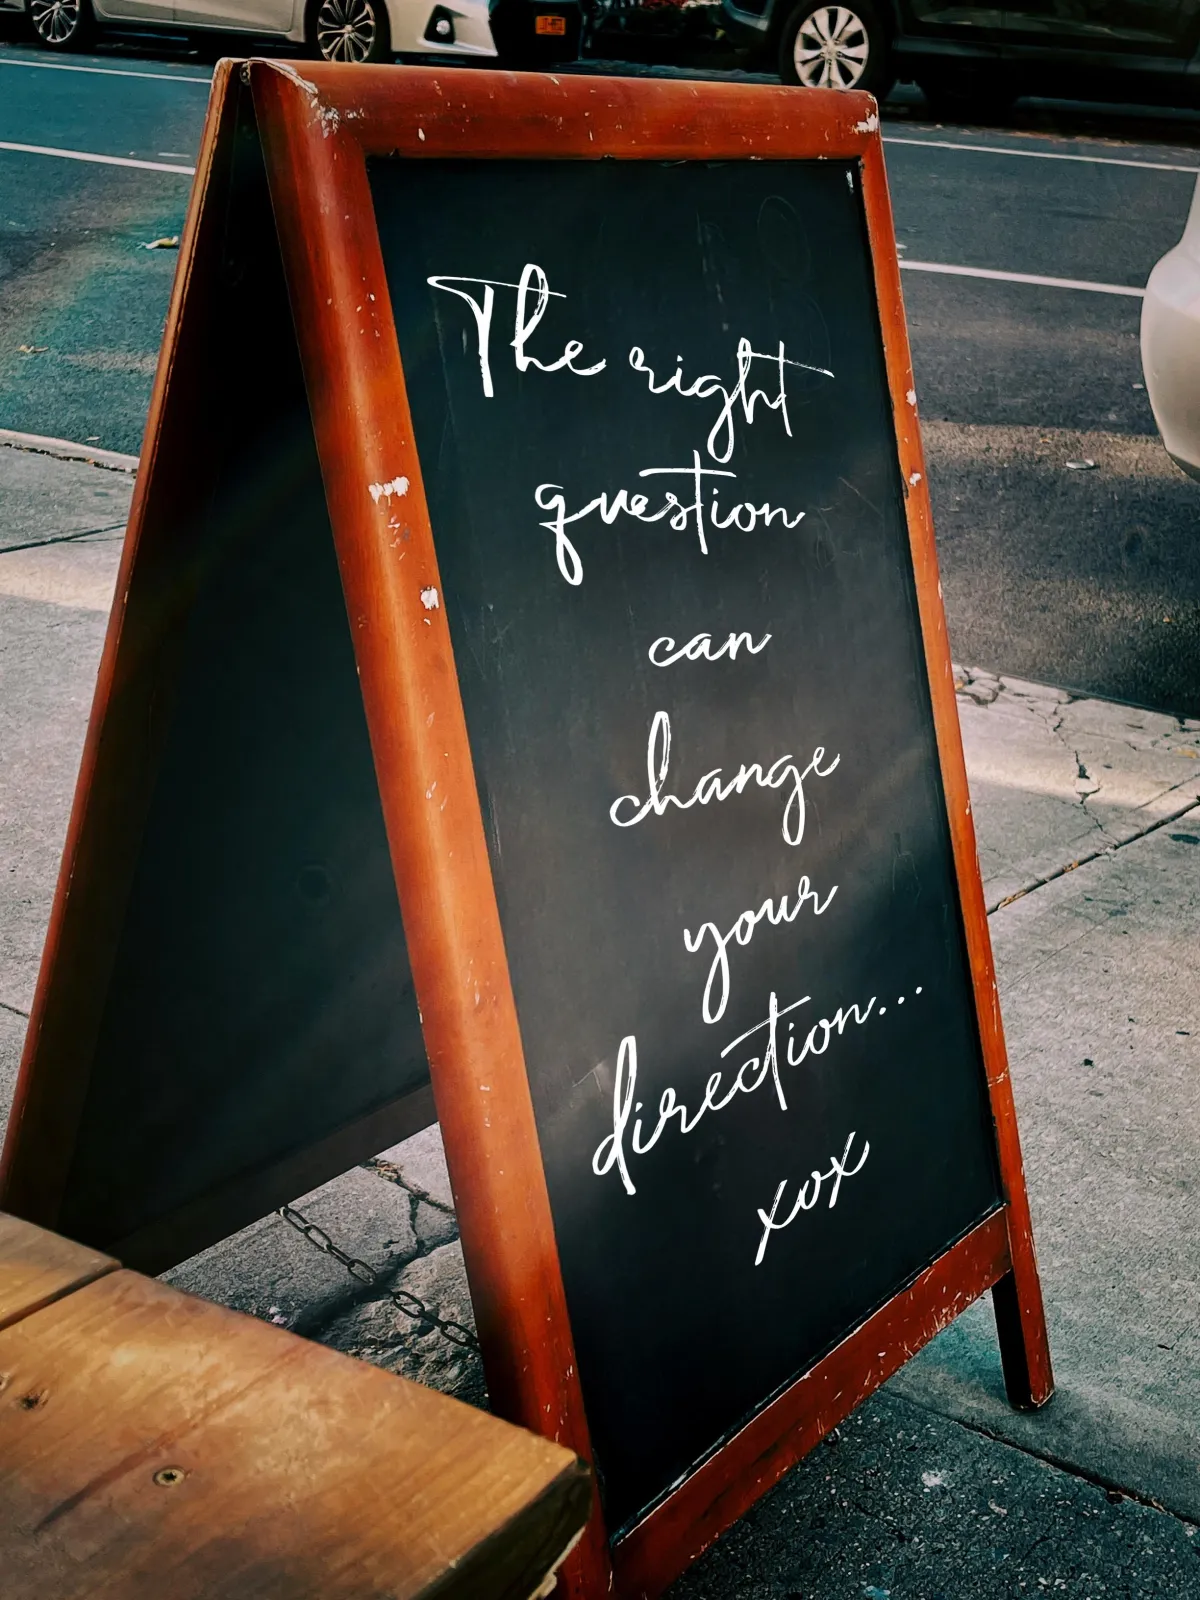 The right
question
can
change
your
direction...
xox